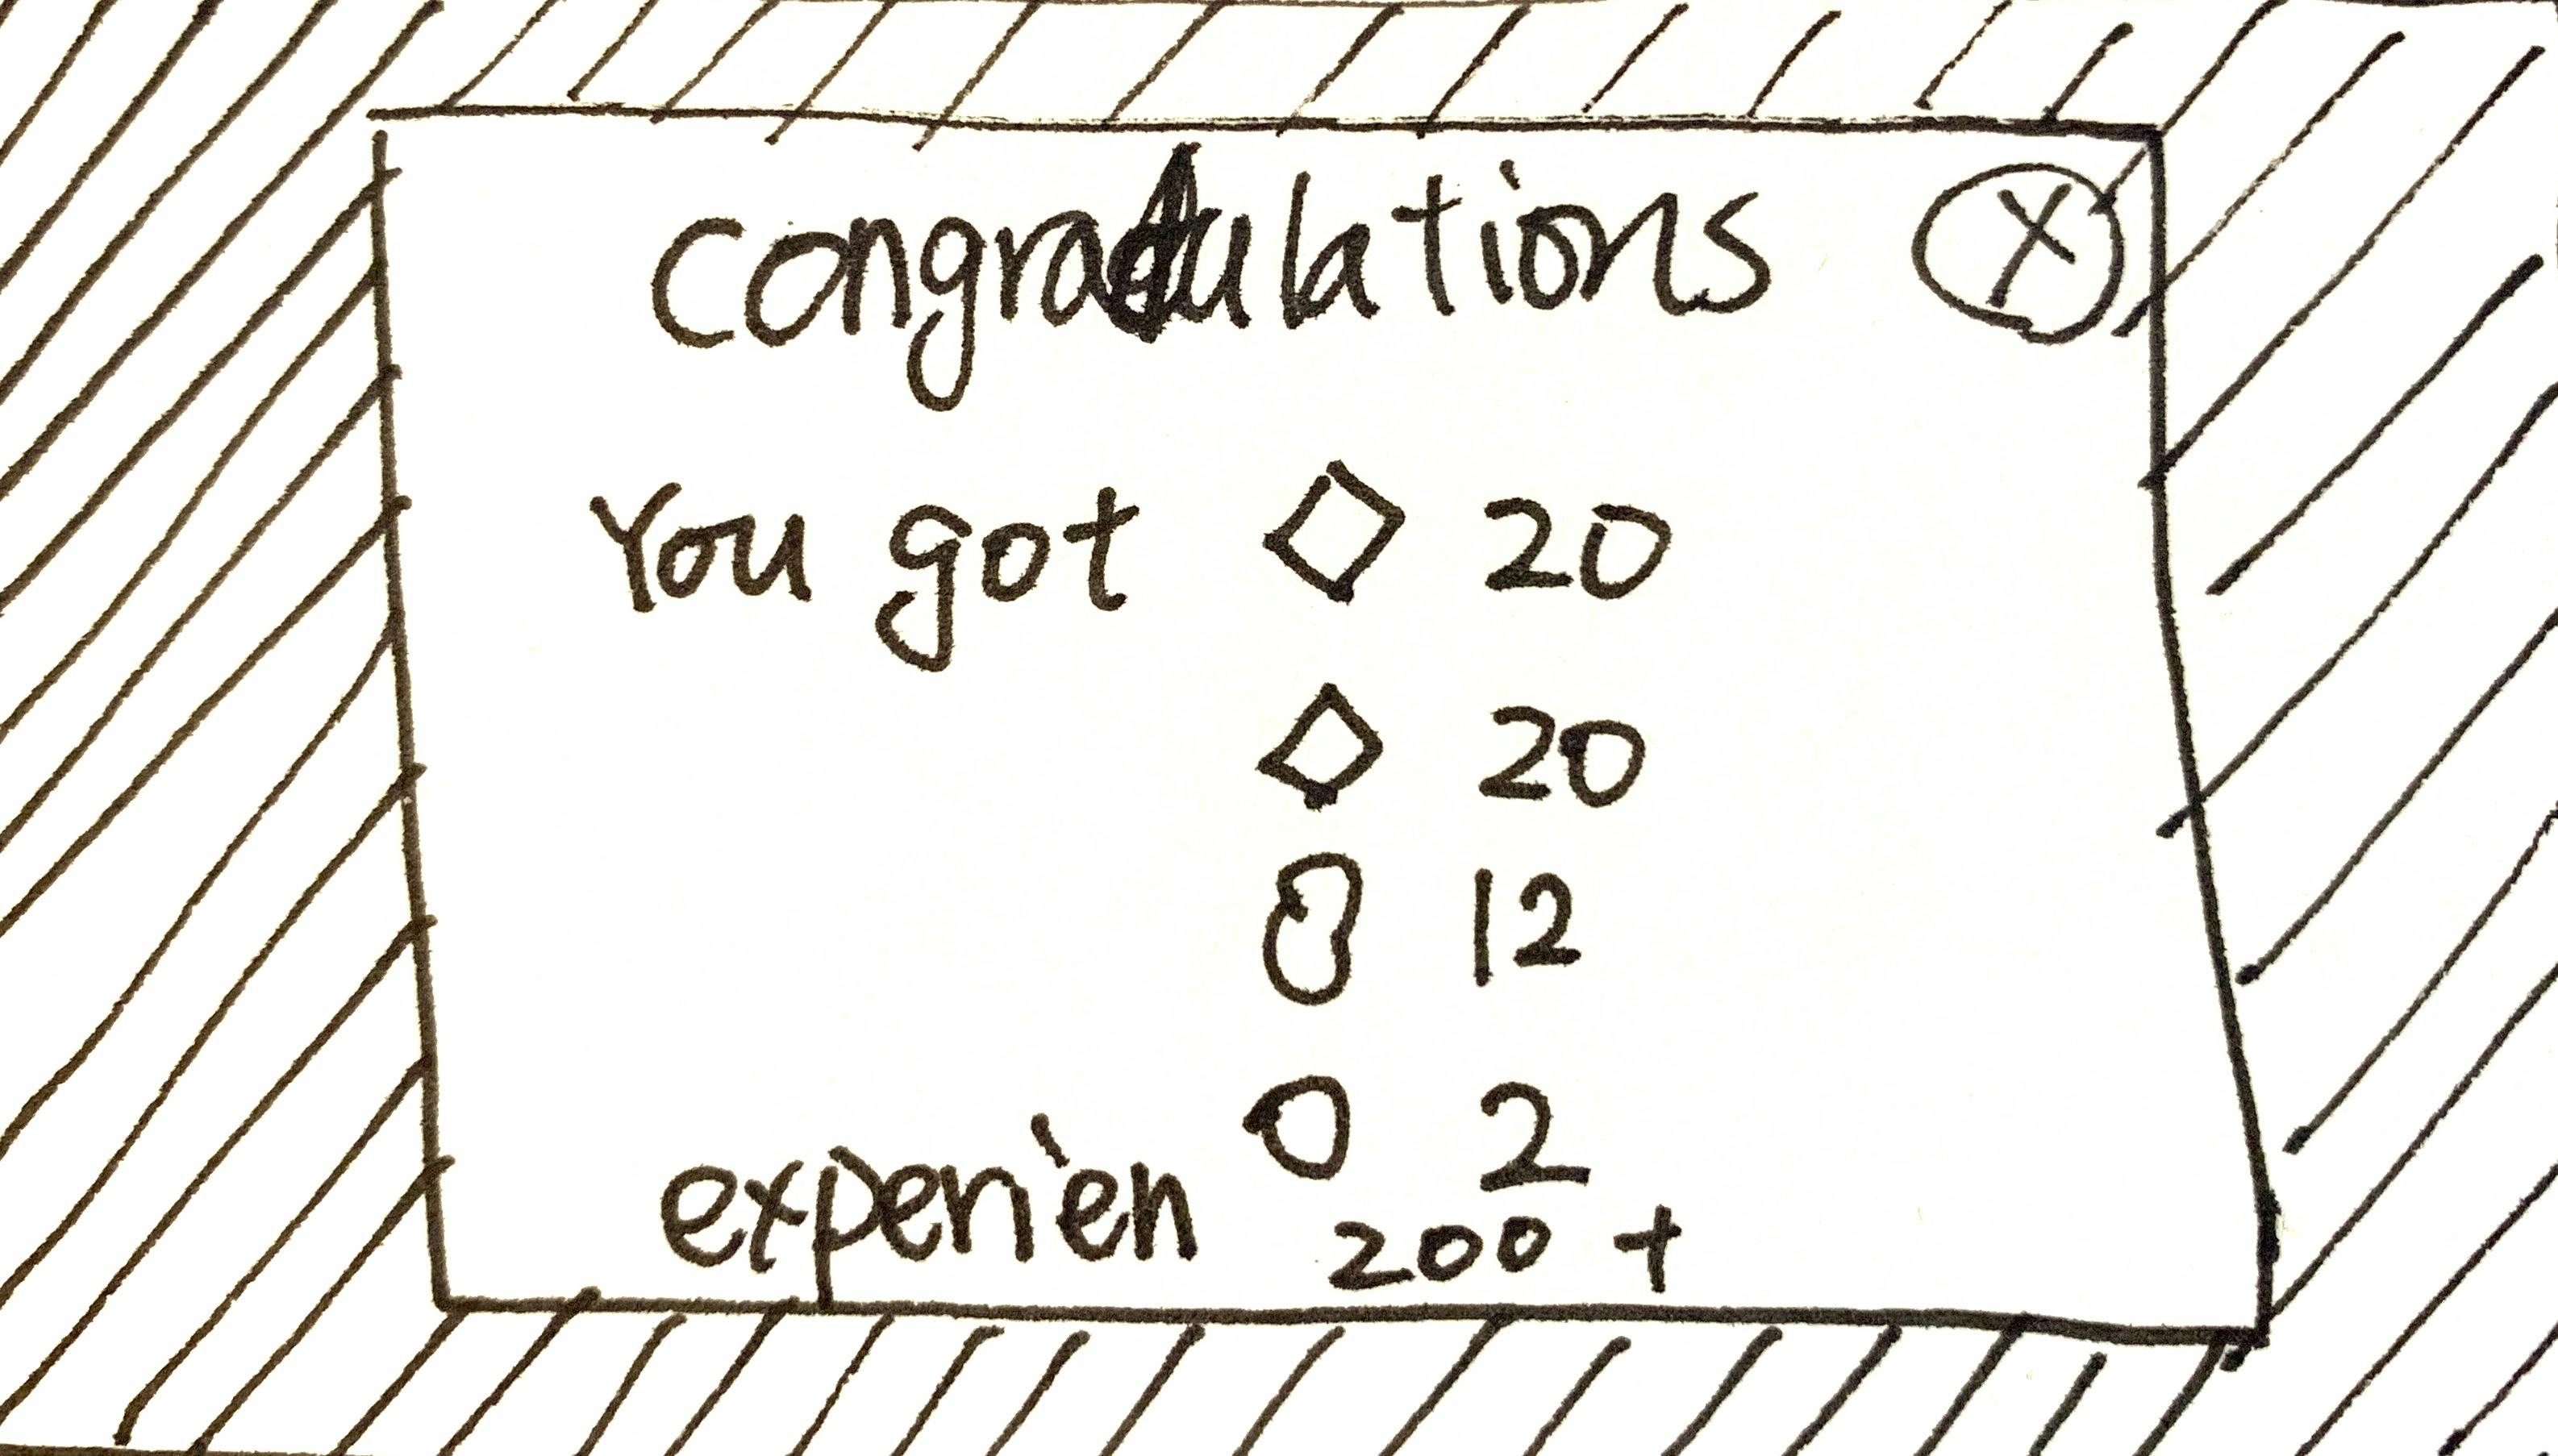 congratulations X
You got ◇ 20
◇ 20
12
2
experien 200 +